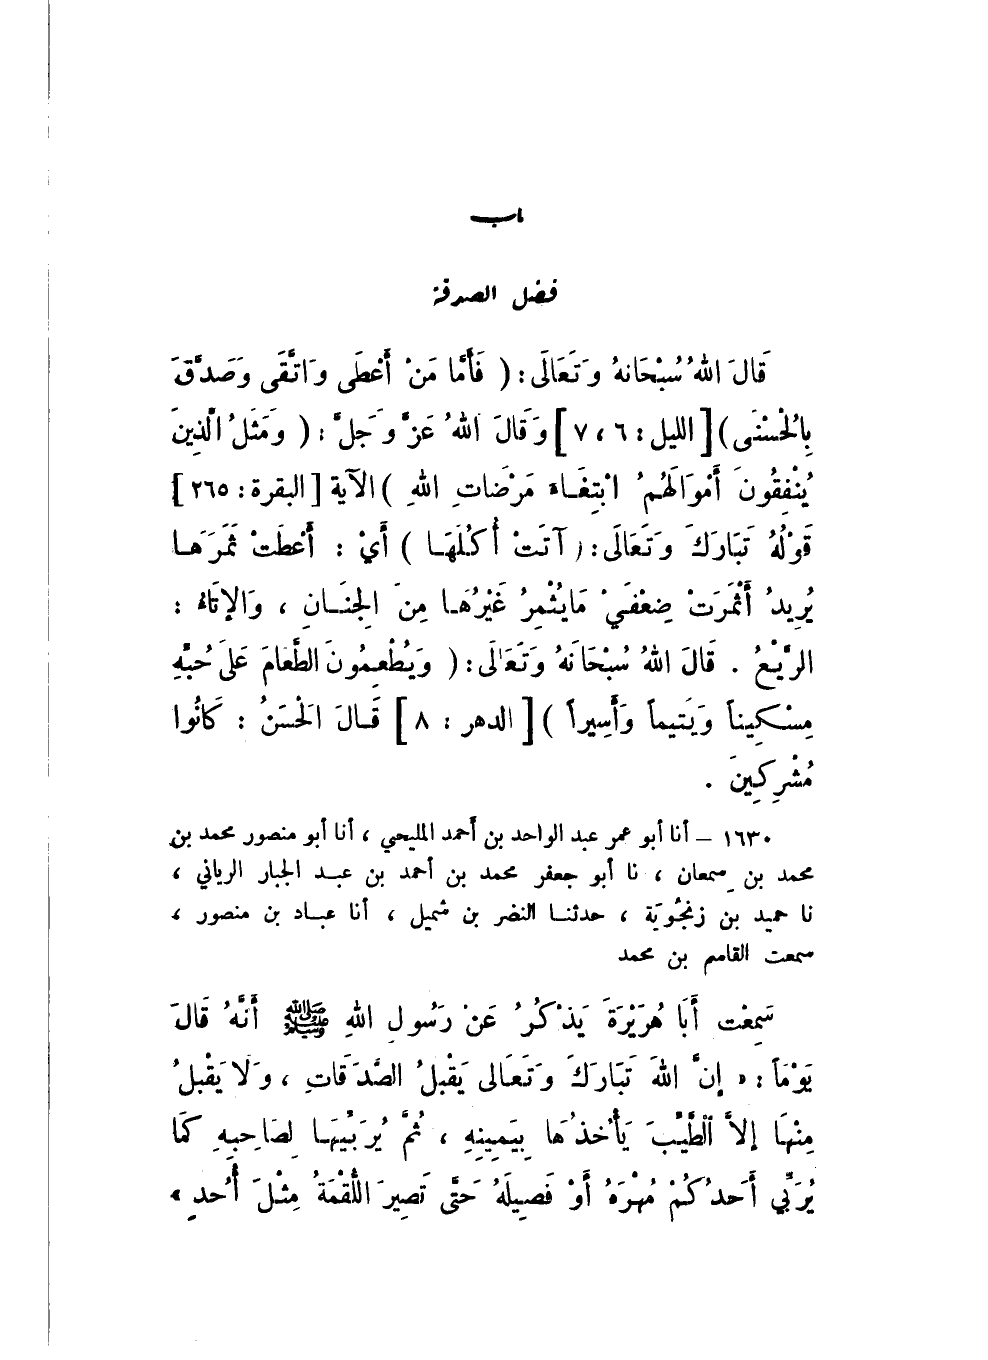 باب
فضل الصدقة
قَالَ اللهُ سُبْحَانهُ وَتَعَالَى : ( فَأَمَّا مَنْ أَعْطَى وَاتَّقَى وَصَدَّقَ
بِالْحُسْنَى ) [ الليل : ٦ ، ٧ ] وَقَالَ اللهُ عَزَّ وَجَلَّ : ( وَمَثَلُ الَّذِينَ
يُنْفِقُونَ أَمْوَالَهُمُ ابْتِغَاءَ مَرْضَاتِ اللهِ ) الآية [ البقرة : ٢٦٥ ]
قَوْلُهُ تَبَارَكَ وَتَعَالَى : ( آتَتْ أُكُلَهَا ) أَيْ : أَعْطَتْ ثَمَرَهَا
يُرِيدُ أَثْمَرَتْ ضِعْفَيْ مَا يُثْمِرُ غَيْرُهَا مِنَ الْجِنَانِ ، وَالإِتَاءُ :
الرَّيْعُ . قَالَ اللهُ سُبْحَانَهُ وَتَعَالَى : ( وَيُطْعِمُونَ الطَّعَامَ عَلَى حُبِّهِ
مِسْكِيناً وَيَتيماً وَأَسِيراً ) [ الدهر : ٨ ] قَالَ الْحَسَنُ : كَانُوا
مُشْرِكِينَ .
١٦٣٠ – أنا أبو عمر عبد الواحد بن أحمد المليحي ، أنا أبو منصور محمد بن
محمد بن سمعان ، نا أبو جعفر محمد بن أحمد بن عبد الجبار الرياني ،
نا حميد بن زنجُويَة ، حدثنا النضر بن شميل ، أنا عباد بن منصور ،
سمعت القاسم بن محمد
سَمِعْت أَبَا هُرَيْرَةَ يَذْكُرُ عَنْ رَسُولِ اللهِ ﷺ أَنَّهُ قَالَ
يَوْمَاً : « إِنَّ اللهَ تَبَارَكَ وَتَعَالى يَقْبلُ الصَّدَقَاتِ ، وَلا يَقْبلُ
مِنْهَا إِلاَّ الطَّيِّبَ يَأْخُذُهَا بِيَمِينِهِ ، ثُمَّ يُرَبِّيهَا لِصَاحِبِهِ كَمَا
يُرَبِّي أَحَدُكُمْ مُهْرَهُ أَوْ فَصِيلَهُ حَتَّى تَصِيرَ اللُّقْمَةُ مِثْلَ أُحدٍ »